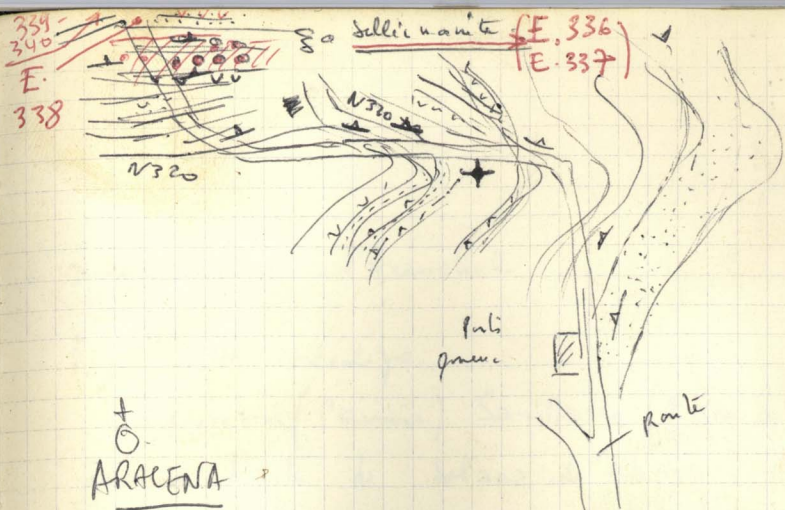 339-
340
E.
338
ξa Sillimanite (E. 336
E. 337)
N320
N320
Route
ARACENA